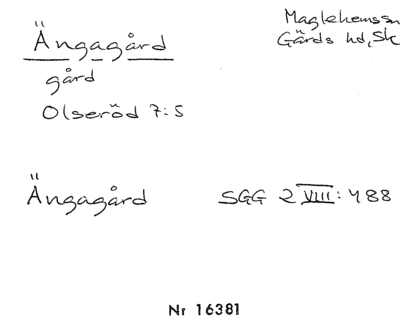 Ängagård
Maglehems sn
Gärds hd, Sk
gård
Olseröd 7:5
Ängagård SGG 2 VIII: 488
Nr 16381